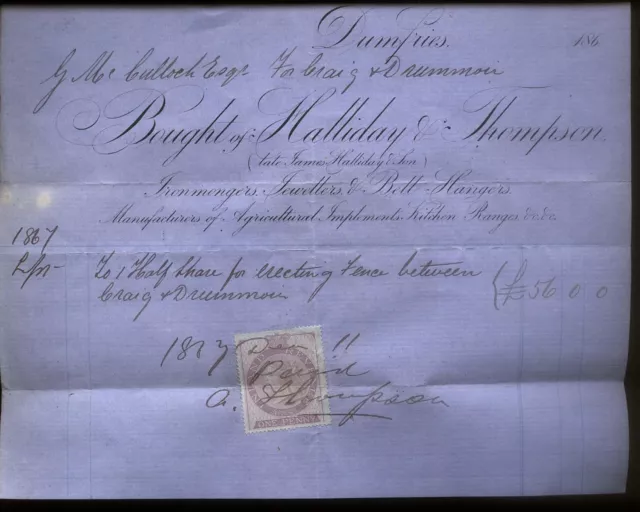 Dumfries. 186
G McCulloch Esqr For Craig & Drummoir
Bought of Halliday & Thompson
(late James Halliday & Son)
Ironmongers, Jewellers & Bell-Hangers.
Manufacturers of Agricultural Implements, Kitchen Ranges &c &c.
1867
To 1 Half Share for erecting Fence between
Craig & Drummoir £56 0 0
1867 11
Paid
A. Thompson
ONE PENNY